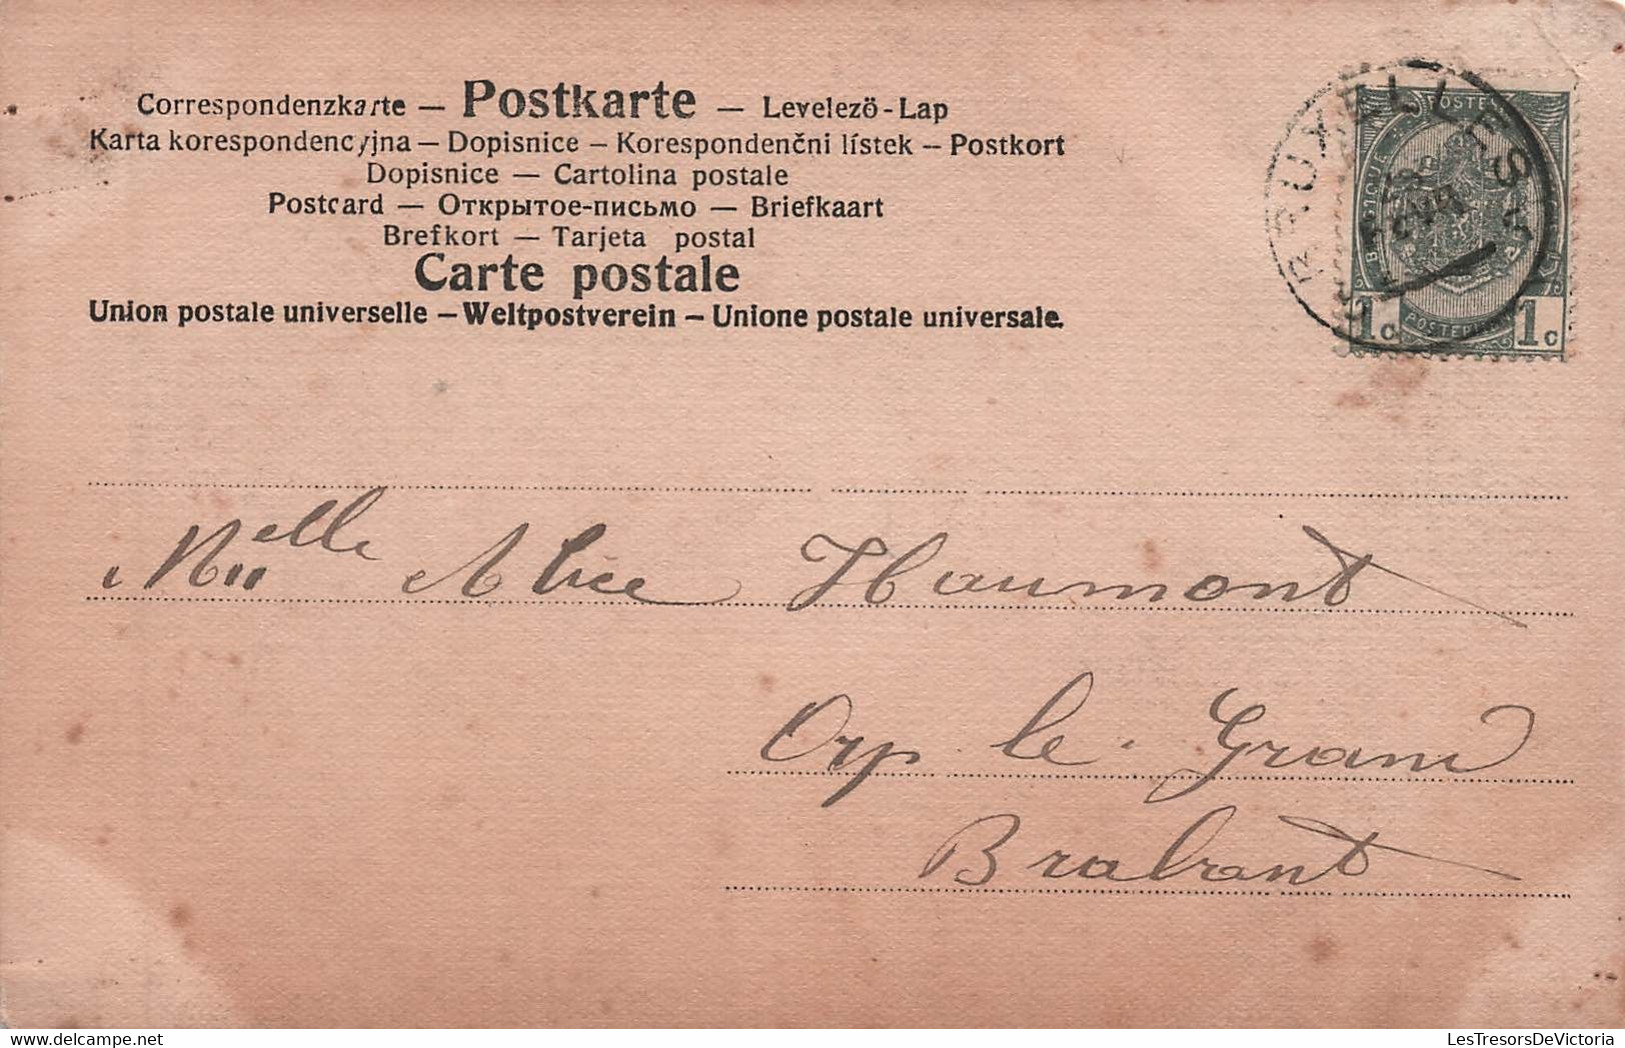 Correspondenzkarte — Postkarte — Levelező-Lap
Karta korespondencyjna — Dopisnice — Korespondenčni lístek — Postkort
Dopisnice — Cartolina postale
Postcard — Открытое-письмо — Briefkaart
Brefkort — Tarjeta postal
Carte postale
Union postale universelle — Weltpostverein — Unione postale universale.
BRUXELLES
POSTES
BELGIQUE
1c 1c
Melle Alice Haumont
Orp. le. Grand
Brabant
LesTresorsDeVictoria